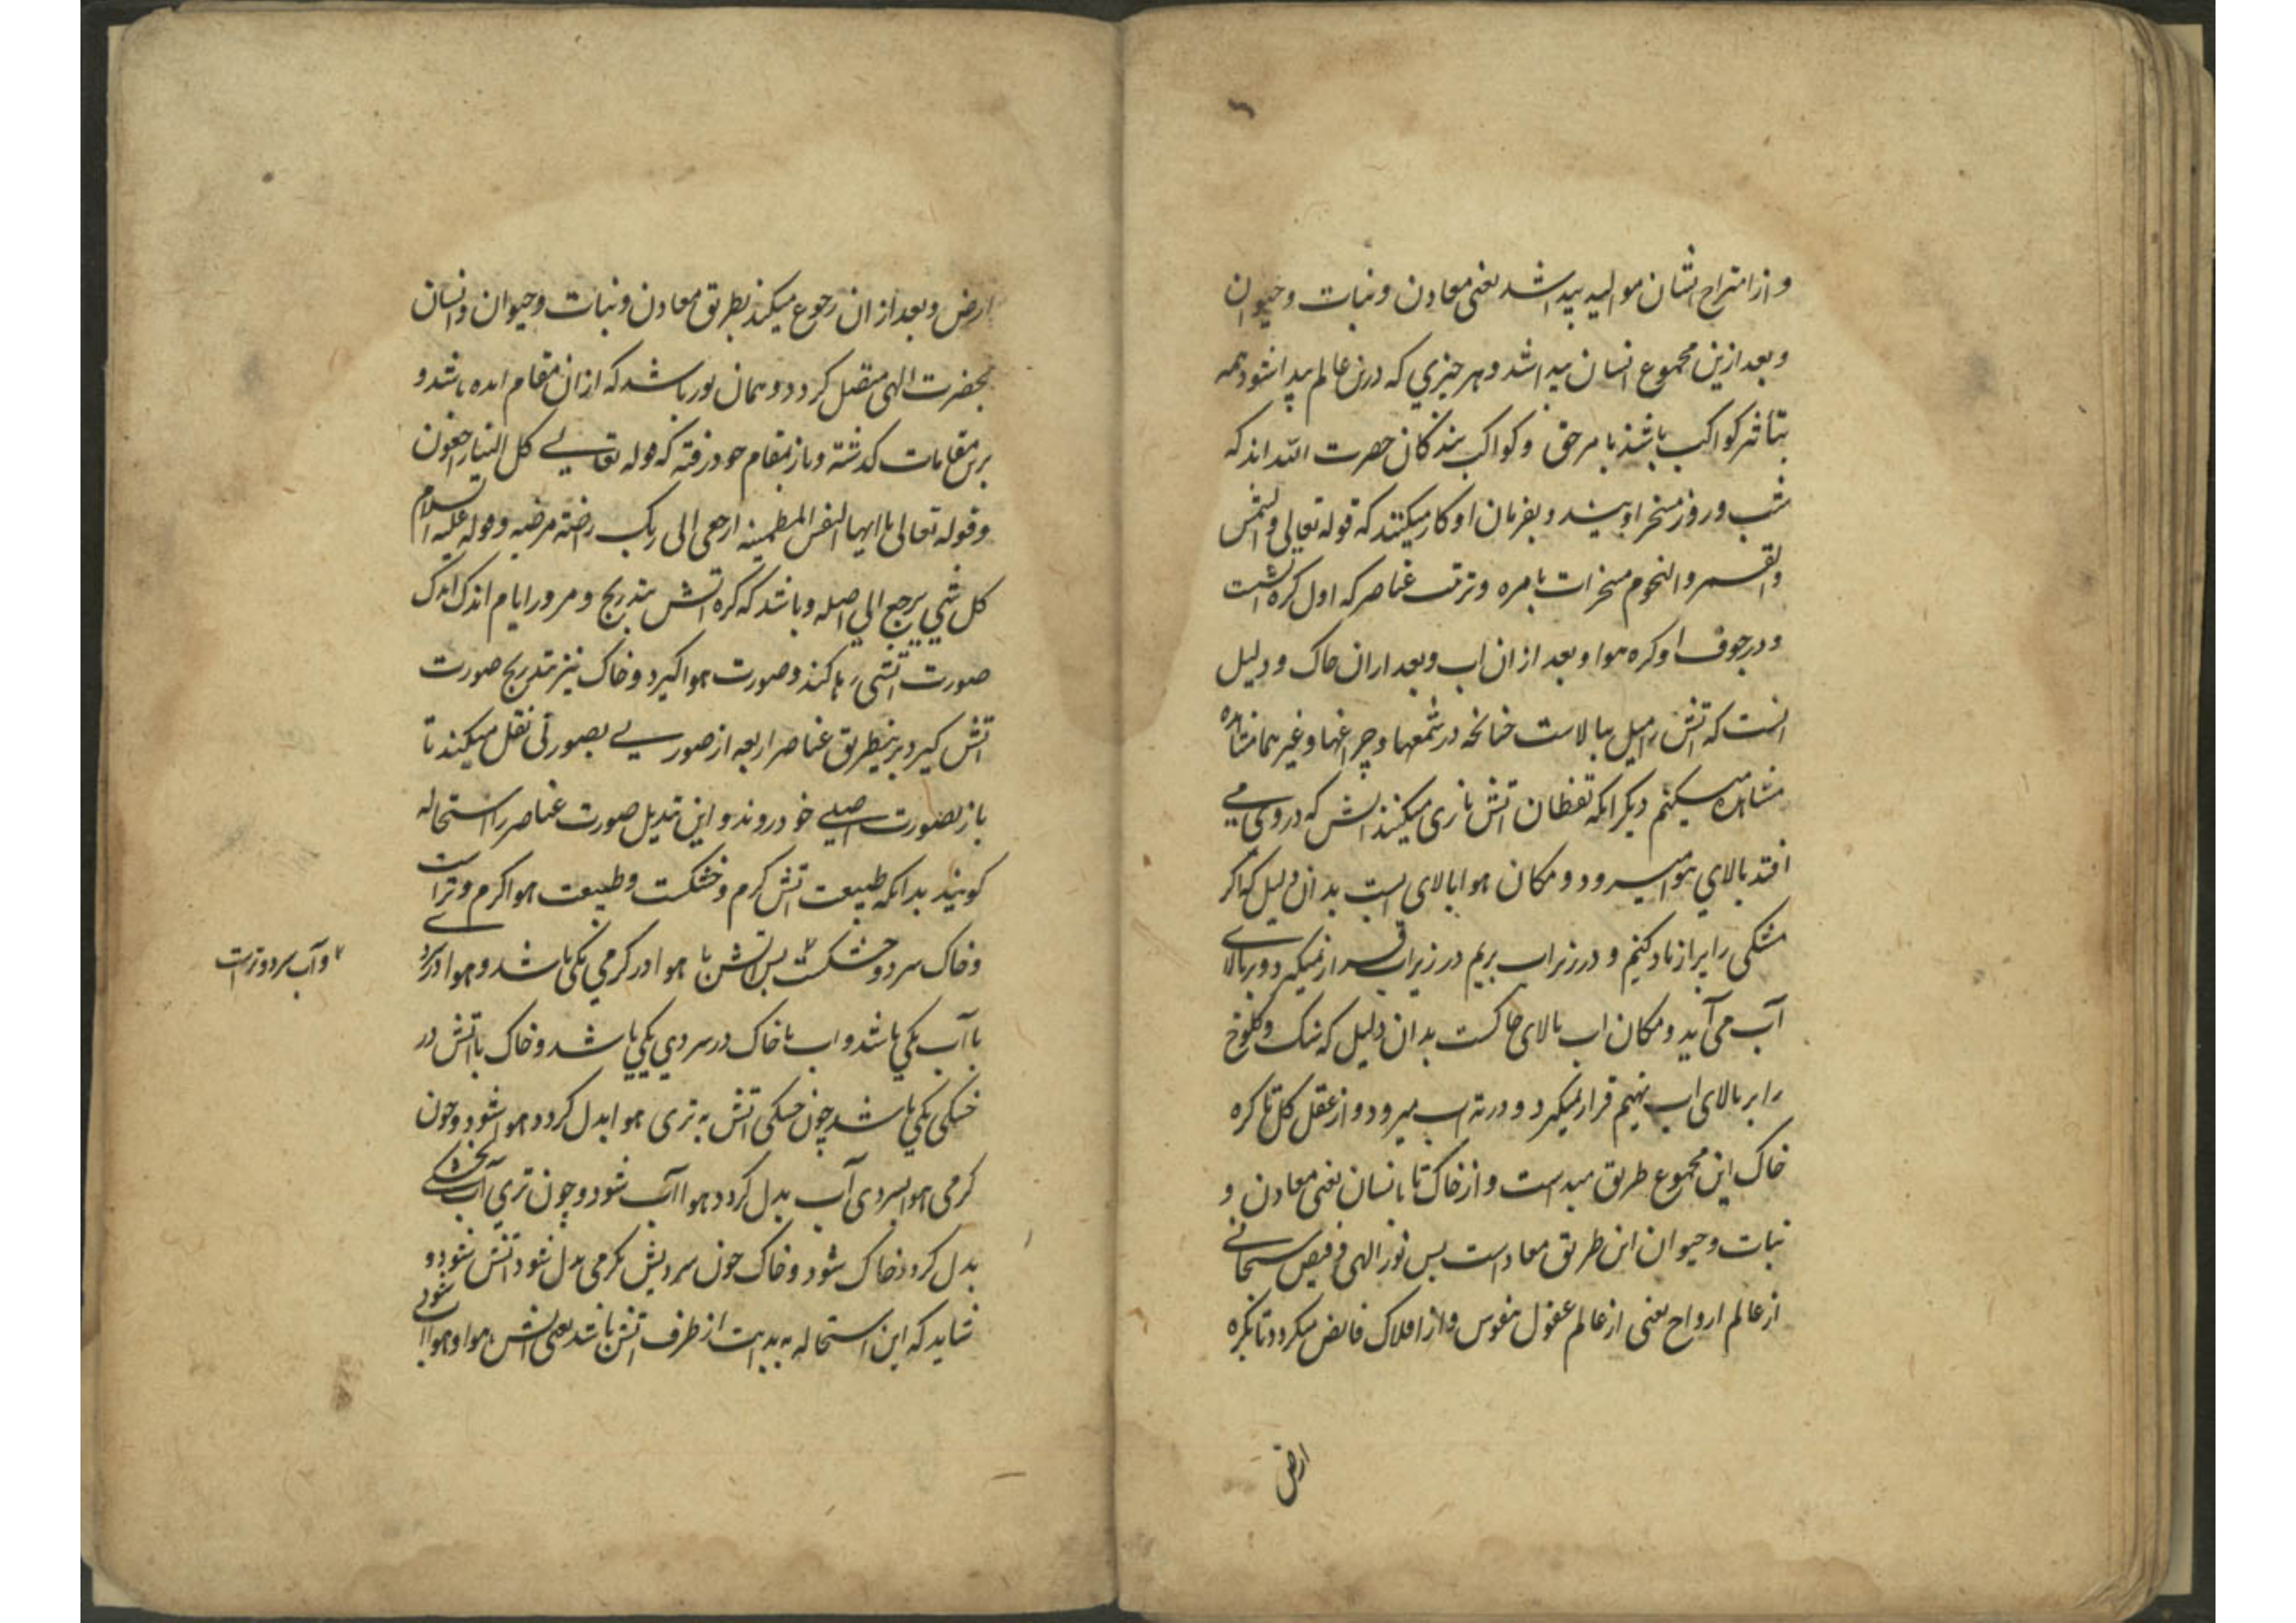 و از امتزاج ایشان موالید پیدا شد یعنی معادن و نبات و حیوان
و بعد ازین مجموع انسان پیدا شد و هر چیزی که درین عالم پیدا شود همه
بتأثیر کواکب باشد بامر حق و کواکب بندکان حضرت الله اند که
شب و روز مسخر اویند و بفرمان او کار میکنند که قوله تعالی والشمس
والقمر والنجوم مسخرات بامره و ترتیب عناصر که اول کره آتشست
و در جوف او کره هوا و بعد از ان اب و بعد از ان خاک و دلیل
انست که آتش را میل ببالاست چنانچه در شمعها و چراغها و غیرهما مشاهده
مشاهده میکنیم دیکر انکه نفطان آتش بازی میکنند آتش که در وی می
افتد بالای هوا میرود و مکان هوا بالای ابست بدان دلیل که اکر
مشکی را پر از باد کنیم و در زیر اب بریم در زیر اب قرار نمیکیرد و بر بالای
آب می آید و مکان اب بالای خاکست بدان دلیل که سنک و کلوخ
را بر بالای اب نهیم قرار نمیکیرد و در ته اب میرود و از عقل کل تا کره
خاک این مجموع طریق مبداست و از خاک تا بانسان یعنی معادن و
نبات و حیوان این طریق معاد است پس نور الهی و فیض سبحانی
از عالم ارواح یعنی از عالم عقول و نفوس و از افلاک فایض میکردد تا بکره
ارض
ارض و بعد از ان رجوع میکند بطریق معادن و نبات و حیوان و انسان
بحضرت الهی متصل کردد و همان نور باشد که از ان مقام امده باشد و
برین مقامات کذشته و باز بمقام خود رفته که قوله تعالی کل الینا راجعون
و قوله تعالی یا ایها النفس المطمئنه ارجعی الی ربک راضیه مرضیه و قوله علیه السلام
کل شی یرجع الی اصله و باشد که کره آتش بتدریج و مرور ایام اندک اندک
صورت آتشی رها کند و صورت هوا کیرد و خاک نیز بتدریج صورت
آتش کیرد برینطریق عناصر اربعه از صورتی بصورتی نقل میکنند تا
باز بصورت اصلی خود روند و این تبدیل صورت عناصر را استحاله
کویند بدانکه طبیعت آتش کرم و خشکست و طبیعت هوا کرم و تر است
و خاک سرد و خشکست پس آتش با هوا در کرمی یکی باشد و هوا در تری
و آب سرد و تر است
با آب یکی باشد و اب با خاک در سردی یکی باشد و خاک با آتش در
خشکی یکی باشد چون خشکی آتش به تری هوا بدل کردد هوا شود و چون
کرمی هوا بسردی آب بدل کردد هوا آب شود و چون تری آب بخشکی
بدل کردد خاک شود و خاک چون سردیش بکرمی بدل شود آتش شود و
شاید که این استحاله به بدایت از طرف آتش باشد یعنی آتش هوا و هوا آب شود